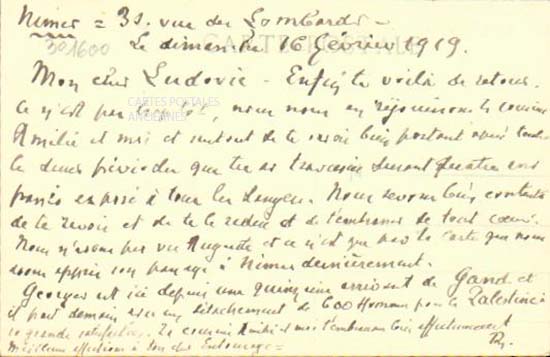 Nimes = 31. rue des Lombards –
301600
Le dimanche 16 février 1919.
CARTE POSTALE
Mon cher Ludovic – Enfin te voilà de retour.
Ce n'est pas trop tôt, nous nous en réjouissons la cousine
CARTES POSTALES
ANCIENNES
Amélie et moi et surtout de te savoir bien portant après toute
la dure période que tu as traversée durant quatre ans
passés exposé à tous les dangers. Nous serons bien contents
de te revoir et de te le redire et de t'embrasser de tout cœur.
Nous n'avons pas vu Auguste et ce n'est que par ta carte que nous
avons appris son passage à Nimes dernièrement.
Georges est ici depuis une quinzaine arrivant de Gand et
il part demain avec un détachement de 600 Hommes pour la Palestine à
sa grande satisfaction. La cousine Amélie et moi t'embrassons bien affectueusement
Meilleures affections à ton cher Entourage =